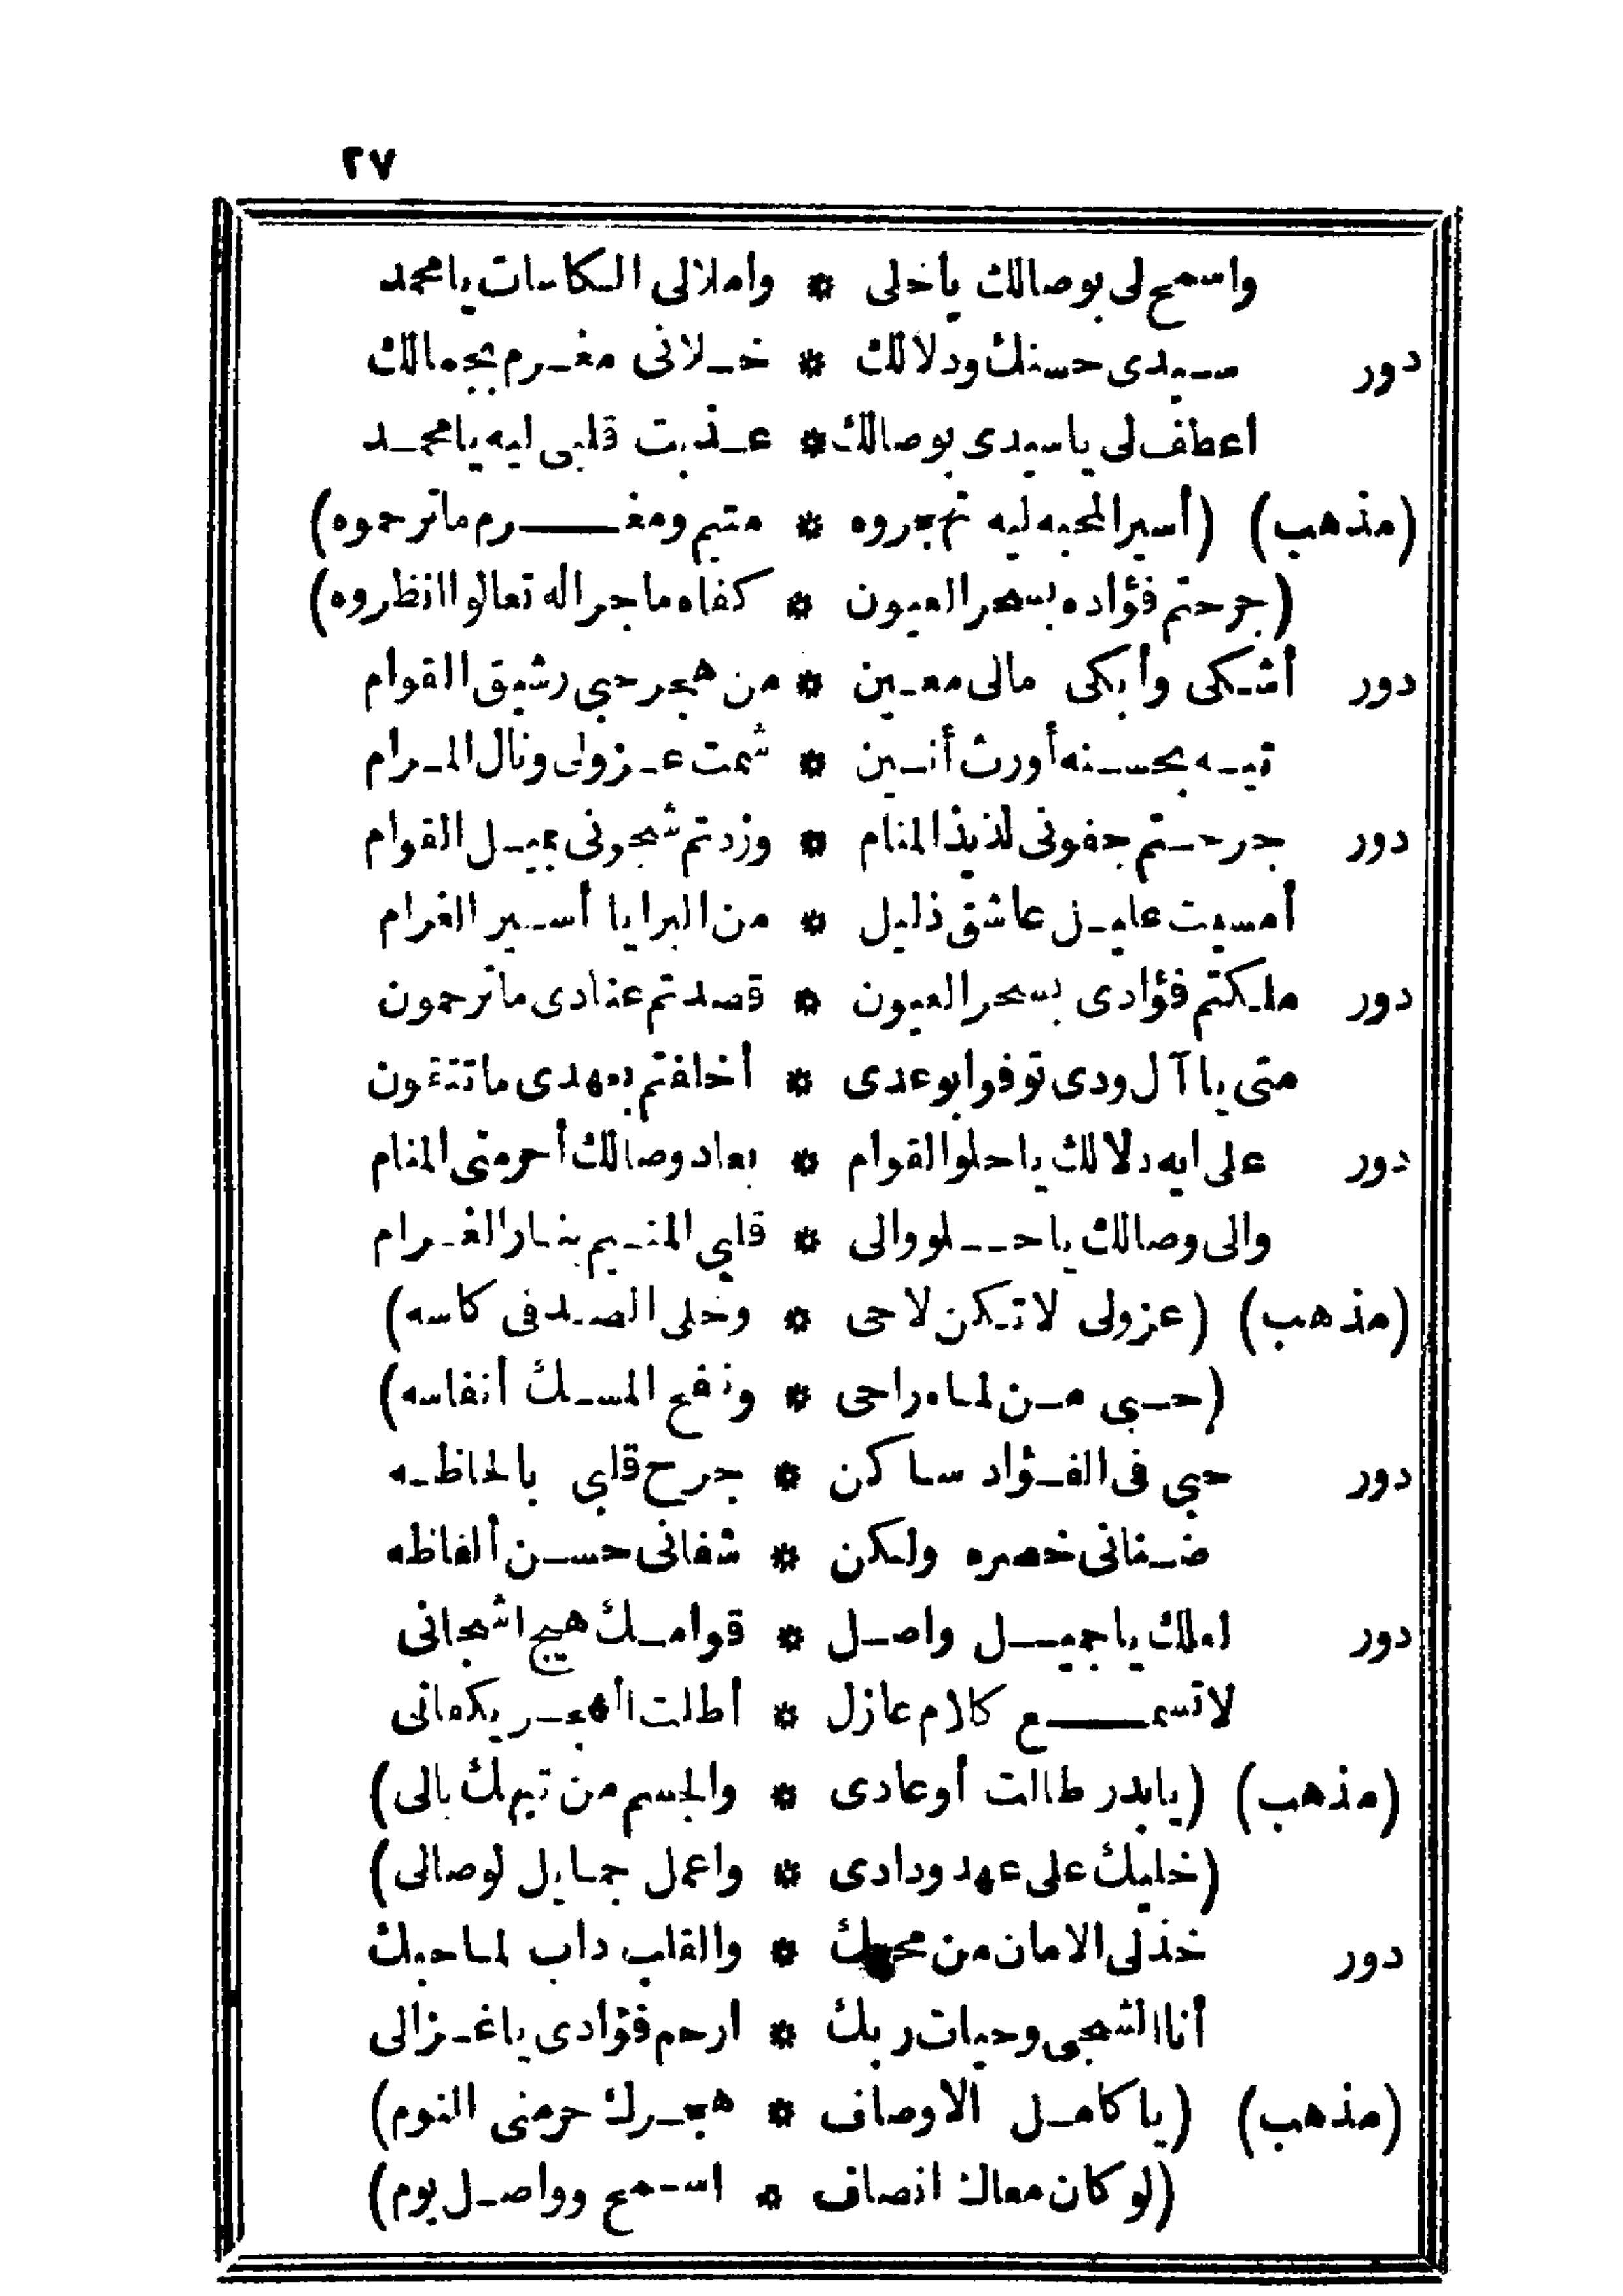 ٢٧
واسمح لى بوصالك ياخلى * واملالى الكاسات يامحمد
دور سيدى حسنك ودلالك * خلانى مغرم بجمالك
اعطف لى ياسيدى بوصالك * عذبت قلبى ليه يامحمد
(مذهب) (أسير المحبه ليه تهجروه * متيم ومغرم ماترحموه)
(جرحتم فؤاده بسحر العيون * كفاه ماجراله تعالوا انظروه)
دور أشكى وأبكى مالى معين * من هجر حبى رشيق القوام
تيه بحسنه أورث أنين * شمت عزولى ونال المرام
دور جرحتم جفونى لذيذ المنام * وزدتم شجونى بميل القوام
أمسيت عليل عاشق ذليل * من البرايا أسير الغرام
دور ملكتم فؤادى بسحر العيون * قصدتم عنادى ماترحمون
متى يا آل ودى توفوا بوعدى * أخلفتم بعهدى ماتتقون
دور على ايه دلالك ياحلو القوام * بعاد وصالك أحرمنى المنام
والى وصالك ياحلو والى * قلبى المتيم بنار الغرام
(مذهب) (عزولى لاتكن لاحى * وخلى الصد فى كاسه)
(حبى من لماه راحى * ونفح المسك أنفاسه)
دور حبى فى الفؤاد ساكن * جرح قلبى بالحاظه
ضنانى خصره ولكن * شفانى حسن ألفاظه
دور املك ياجميل واصل * قوامك هيج اشجانى
لاتسمع كلام عازل * أطلت الهجر يكفانى
(مذهب) (يابدر طالت أوعادى * والجسم من تيهك بالى)
(خليك على عهد ودادى * واعمل جمايل لوصالى)
دور خذلى الامان من محبك * والقلب داب لما حبك
أنا الشجى وحيات ربك * ارحم فؤادى ياغزالى
(مذهب) (ياكامل الاوصاف * هجرك حرمنى النوم)
(لوكان معاك انصاف * اسمح وواصل يوم)